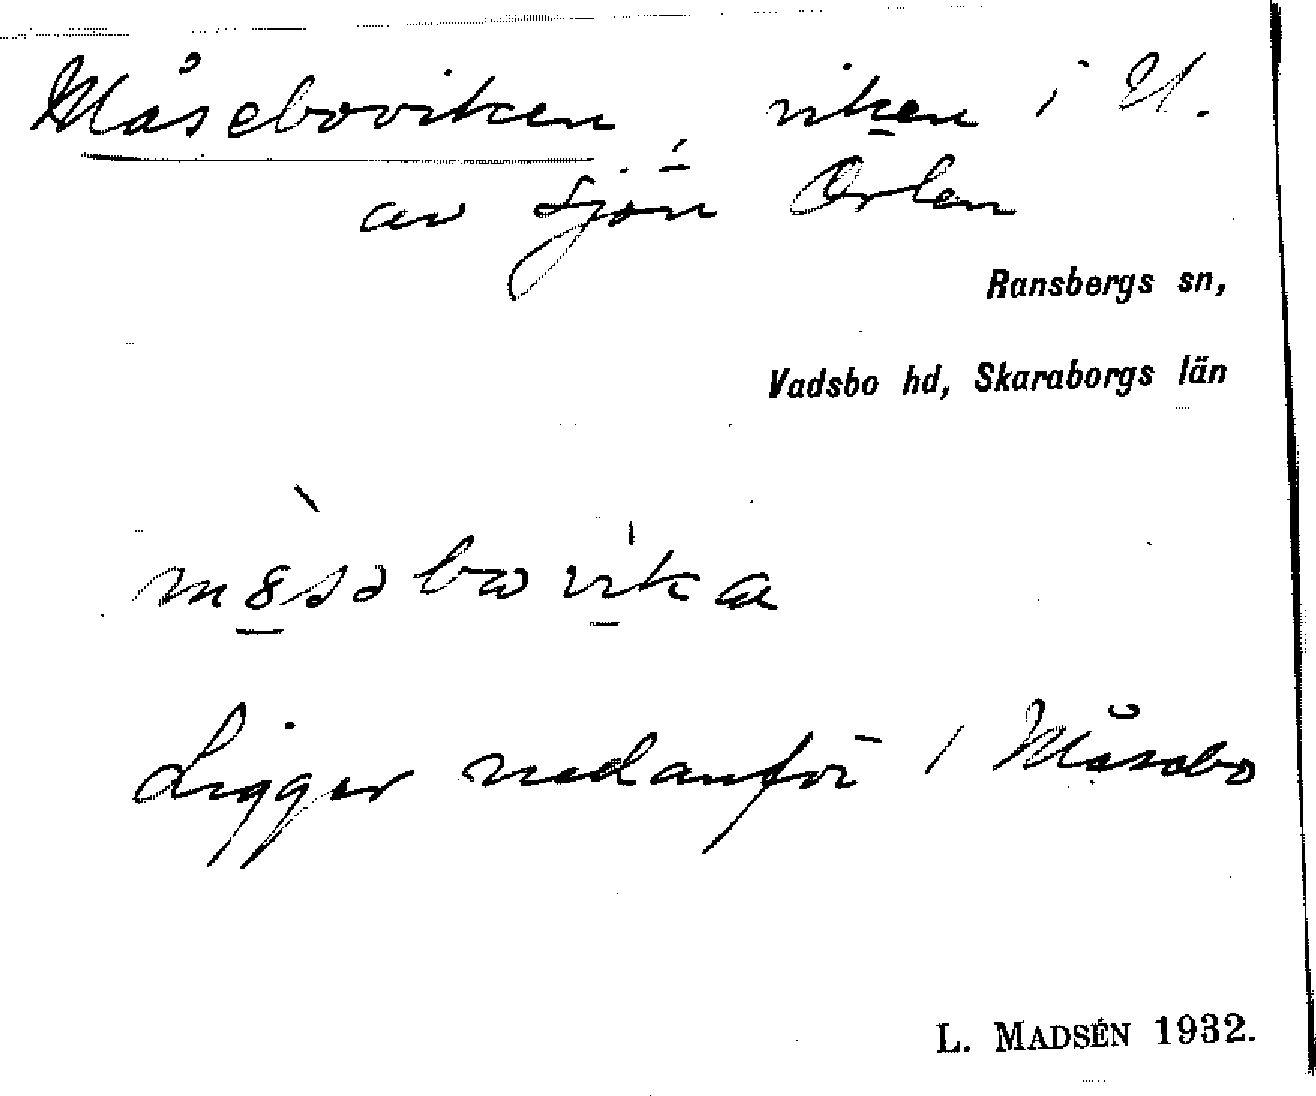 Måseboviken, viken i
av sjön Örlen
Ransbergs sn,
Vadsbo hd, Skaraborgs län
Ligger nedanför / Måsebo
L. MADSÉN 1932.